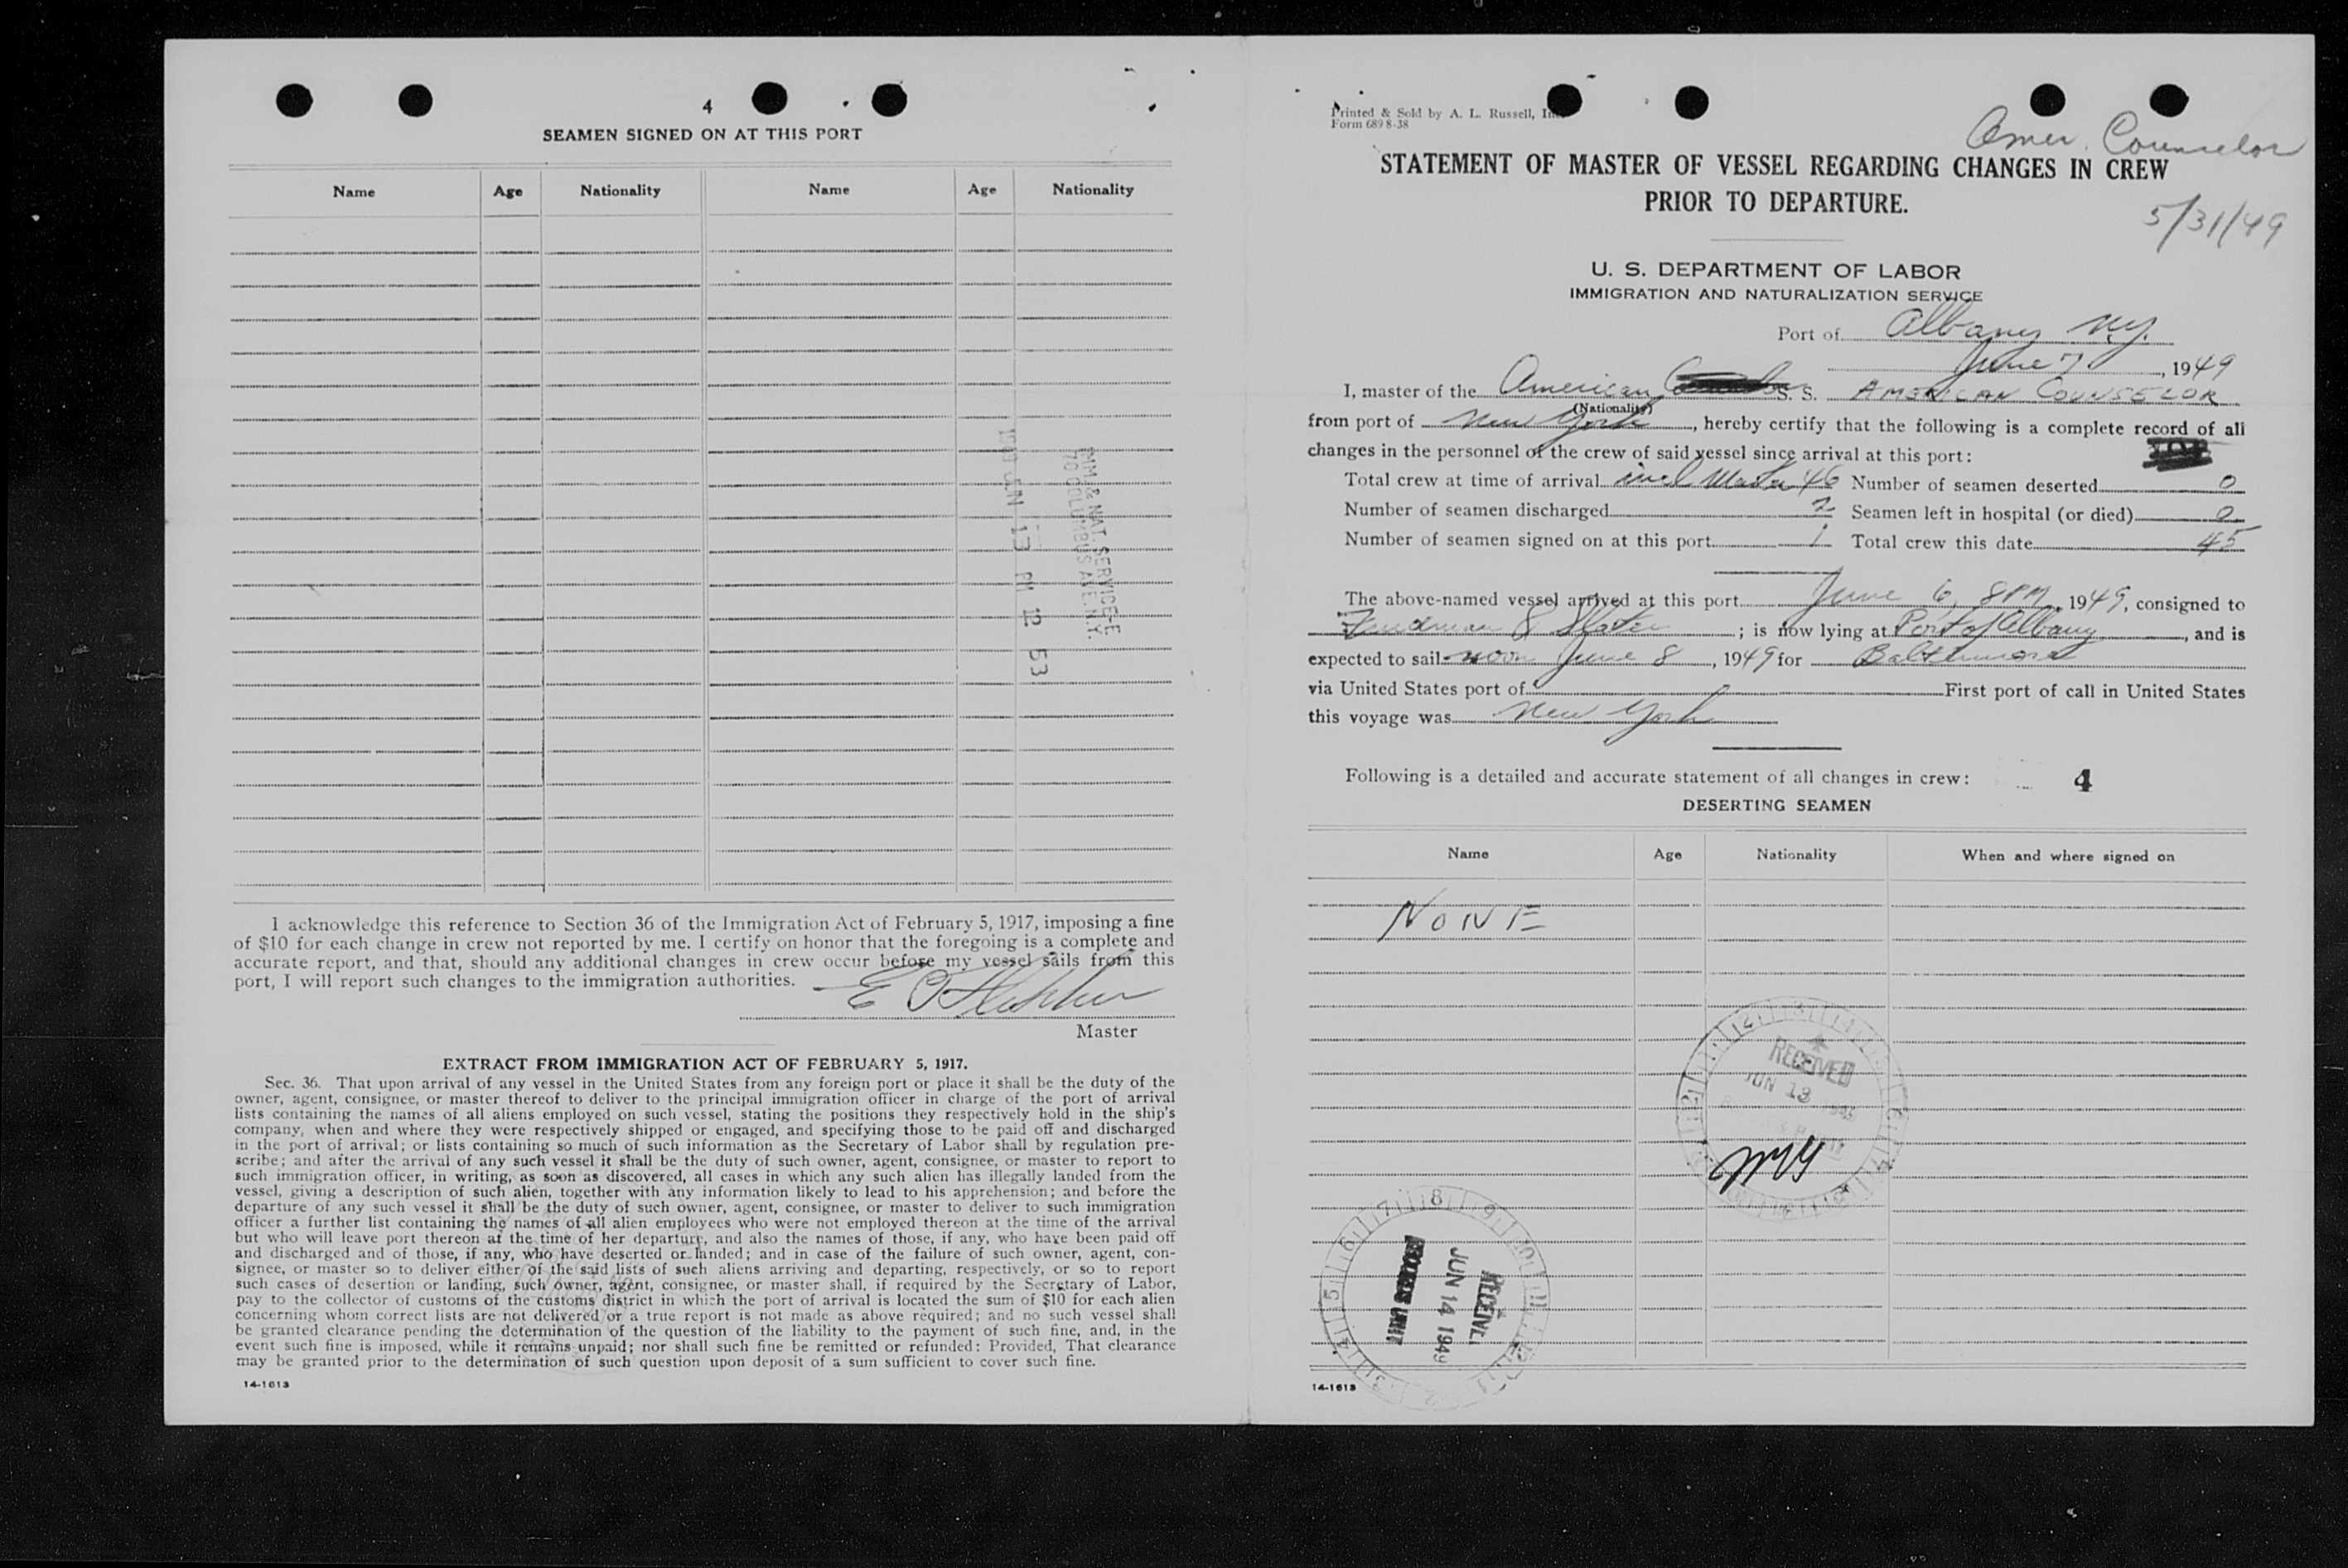 4
SEAMEN SIGNED ON AT THIS PORT
Name Age Nationality Name Age Nationality
IMM. & NAT. SERVICE-E
70 COLUMBUS AVE. N.Y.
13 PM 12 53
I acknowledge this reference to Section 36 of the Immigration Act of February 5, 1917, imposing a fine
of $10 for each change in crew not reported by me. I certify on honor that the foregoing is a complete and
accurate report, and that, should any additional changes in crew occur before my vessel sails from this
port, I will report such changes to the immigration authorities.
Master
EXTRACT FROM IMMIGRATION ACT OF FEBRUARY 5, 1917.
Sec. 36. That upon arrival of any vessel in the United States from any foreign port or place it shall be the duty of the
owner, agent, consignee, or master thereof to deliver to the principal immigration officer in charge of the port of arrival
lists containing the names of all aliens employed on such vessel, stating the positions they respectively hold in the ship's
company, when and where they were respectively shipped or engaged, and specifying those to be paid off and discharged
in the port of arrival; or lists containing so much of such information as the Secretary of Labor shall by regulation pre-
scribe; and after the arrival of any such vessel it shall be the duty of such owner, agent, consignee, or master to report to
such immigration officer, in writing, as soon as discovered, all cases in which any such alien has illegally landed from the
vessel, giving a description of such alien, together with any information likely to lead to his apprehension; and before the
departure of any such vessel it shall be the duty of such owner, agent, consignee, or master to deliver to such immigration
officer a further list containing the names of all alien employees who were not employed thereon at the time of the arrival
but who will leave port thereon at the time of her departure, and also the names of those, if any, who have been paid off
and discharged and of those, if any, who have deserted or landed; and in case of the failure of such owner, agent, con-
signee, or master so to deliver either of the said lists of such aliens arriving and departing, respectively, or so to report
such cases of desertion or landing, such owner, agent, consignee, or master shall, if required by the Secretary of Labor,
pay to the collector of customs of the customs district in which the port of arrival is located the sum of $10 for each alien
concerning whom correct lists are not delivered or a true report is not made as above required; and no such vessel shall
be granted clearance pending the determination of the question of the liability to the payment of such fine, and, in the
event such fine is imposed, while it remains unpaid; nor shall such fine be remitted or refunded: Provided, That clearance
may be granted prior to the determination of such question upon deposit of a sum sufficient to cover such fine.
14-1613
Printed & Sold by A. L. Russell, In
Form 689 8-38
Amer. Counselor
STATEMENT OF MASTER OF VESSEL REGARDING CHANGES IN CREW
PRIOR TO DEPARTURE.
5/31/49
U. S. DEPARTMENT OF LABOR
IMMIGRATION AND NATURALIZATION SERVICE
Port of Albany N.Y.
June 7, 1949
I, master of the American S. S. AMERICAN COUNSELOR
(Nationality)
from port of New York, hereby certify that the following is a complete record of all
changes in the personnel of the crew of said vessel since arrival at this port:
Total crew at time of arrival incl Master 46 Number of seamen deserted 0
Number of seamen discharged 2 Seamen left in hospital (or died) 0
Number of seamen signed on at this port 1 Total crew this date 45
The above-named vessel arrived at this port June 6, 8PM, 1949, consigned to
; is now lying at Port of Albany, and is
expected to sail noon June 8, 1949 for Baltimore
via United States port of First port of call in United States
this voyage was New York
Following is a detailed and accurate statement of all changes in crew: 4
DESERTING SEAMEN
Name Age Nationality When and where signed on
NONE
RECEIVED
JUN 13
RECEIVE
JUN 14 1949
14-1613